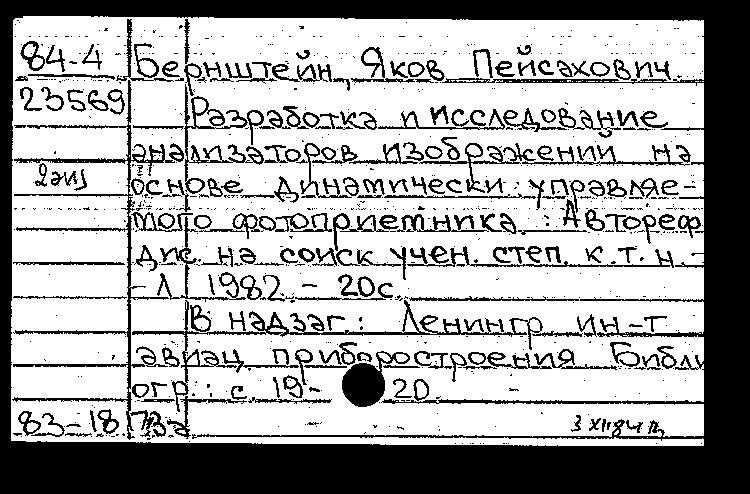 84-4 Бернштейн, Яков Пейсахович
23569 Разработка и исследование
анализаторов изображений на
2экз основе динамически управляе-
мого фотоприемника. : Автореф
дис. на соиск учен. степ. к.т.н. -
- Л 1982. - 20с.
В надзаг.: Ленингр ин-т
авиац приборостроения Библи
огр.: с. 19- 20
83-18